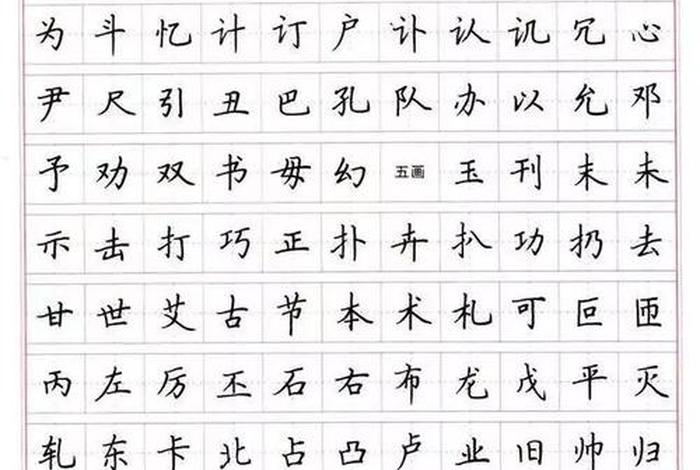 为斗忆计订户讣认讥冗心
尹尺引丑巴孔队办以允邓
予劝双书毋幻五画玉刊末未
示击打巧正扑卉扒功扔去
甘世艾古节本术札可叵匝
丙左厉丕石右布龙戊平灭
轧东卡北占凸卢业旧帅归